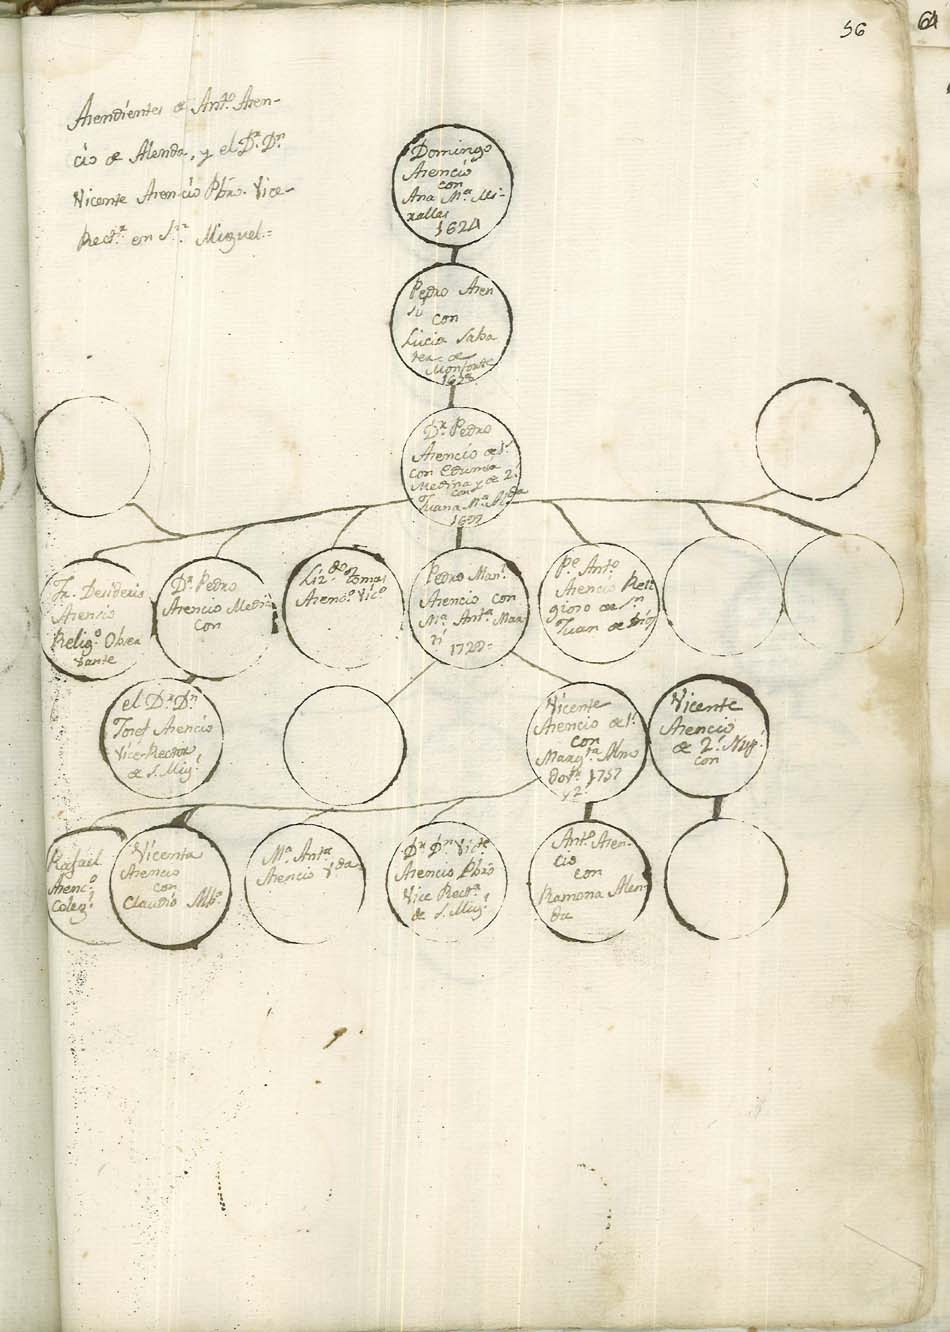 56
64
Asendientes de Antº. Asen-
cio de Alenda, y el Dr. Dn.
Vicente Asencio Pbro. Vice-
Rectr. en Sn. Miguel.=
Domingo
Asencio
con
Ana Mª. Mi-
ralles
1624
Pedro Asen
con
Lucia Saba
ter de
Monforte
Dr. Pedro
Asencio de 1ª.
con
Medina y de 2ª.
con
Juana Mª.
Fr. Desiderio
Asensio
Religº. Obser
vante
Dr. Pedro
Asencio Medina
con
Lizdo. Tomas
Asencº. Vicº
Pedro Manl.
Asencio con
Mª. Antª. Mar
ti
1722=
Pe. Antº.
Asencio Reli
gioso de Sn
Juan de Dios
el Dr. Dn
Josef Asencio
Vice-Rector
de S. Migl.
Vicente
Asencio de 1ª.
con
Margta.
1757
y 2ª
Vicente
Asencio
de 2ª. Nup.
con
Rafael
Asencº.
Colegl.
Vicenta
Asencio
con
Claudio
Mª. Antª
Asencio Vda
Dr. Dn. Victe.
Asencio Pbro
Vice Rectr.
de S. Migl.
Antº. Asen-
cio
con
Ramona Alen-
da